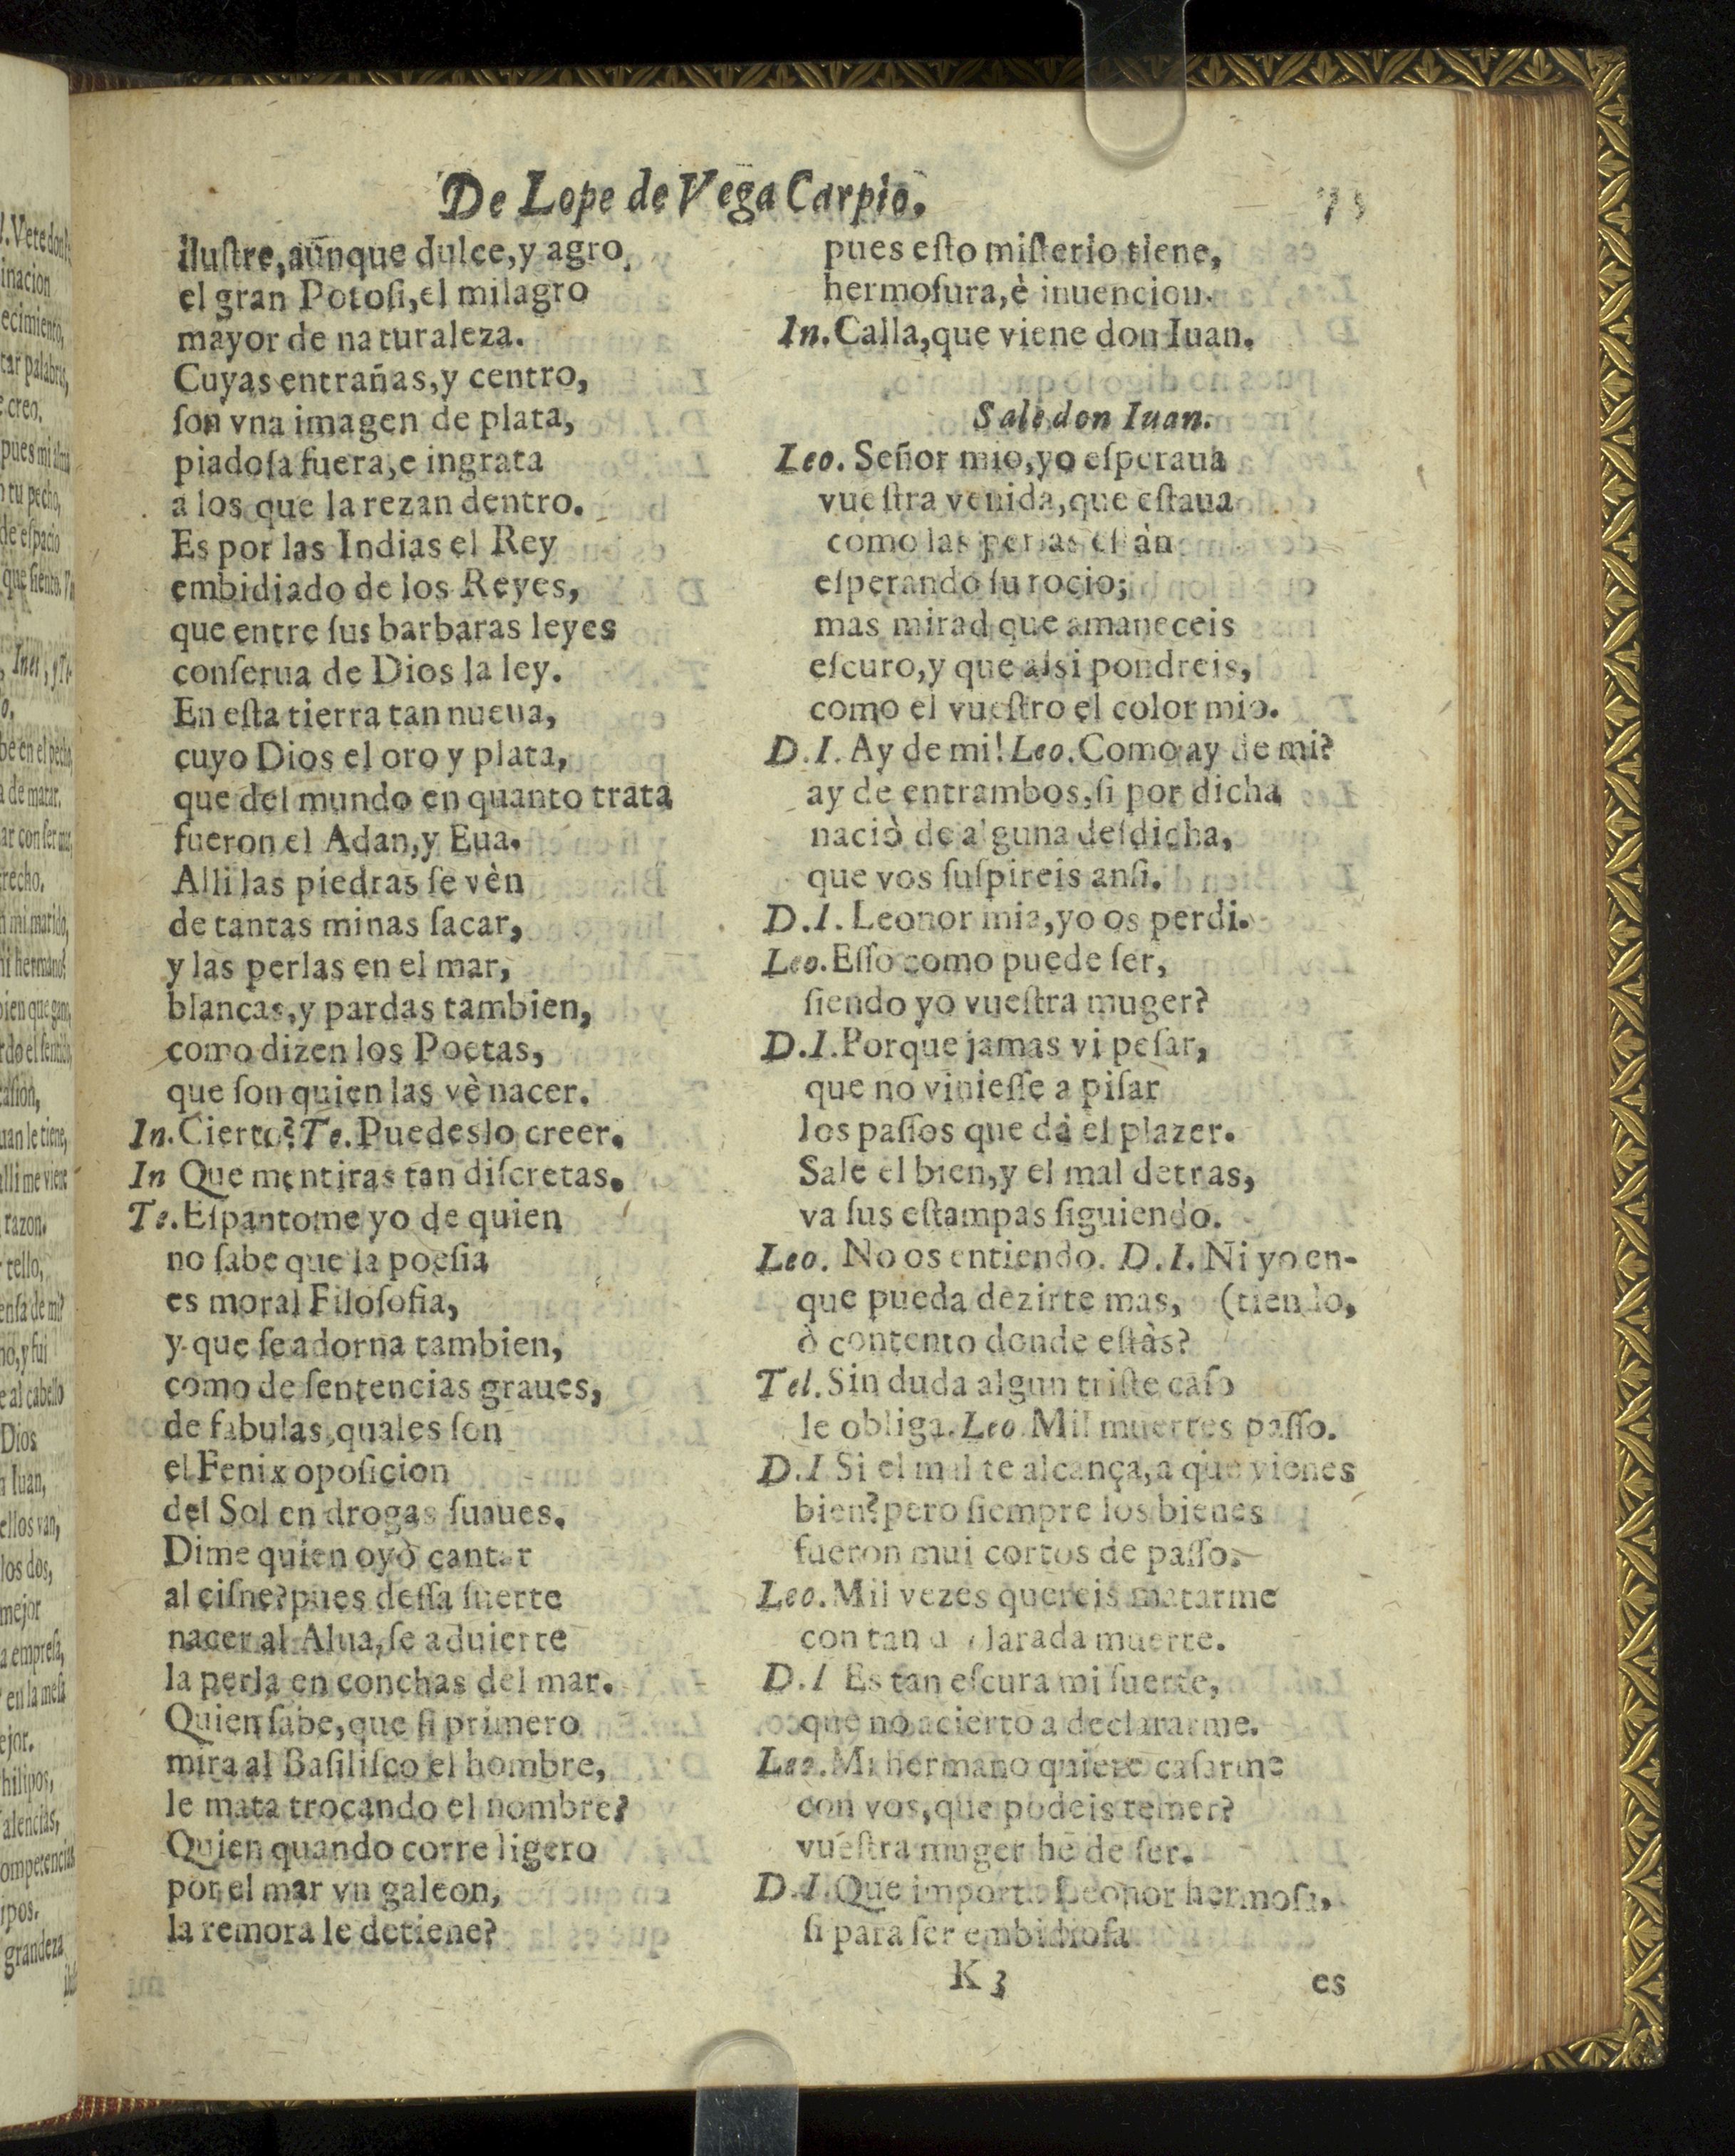 De Lope de Vega Carpio. 75
ilustre, aunque dulce, y agro,
el gran Potosi, el milagro
mayor de naturaleza.
Cuyas entrañas, y centro,
son vna imagen de plata,
piadosa fuera, e ingrata
a los que la rezan dentro.
Es por las Indias el Rey
embidiado de los Reyes,
que entre sus barbaras leyes
conserua de Dios la ley.
En esta tierra tan nueua,
cuyo Dios el oro y plata,
que del mundo en quanto trata
fueron el Adan, y Eua.
Alli las piedras se vèn
de tantas minas sacar,
y las perlas en el mar,
blancas, y pardas tambien,
como dizen los Poetas,
que son quien las vè nacer.
In. Cierto? Te. Puedeslo creer.
In Que mentiras tan discretas.
Te. Espantome yo de quien
no sabe que la poesia
es moral Filosofia,
y que se adorna tambien,
como de sentencias graues,
de fabulas, quales son
el Fenix oposicion
del Sol en drogas suaues.
Dime quien oyò cantar
al cisne? pues dessa suerte
nacer al Alua, se aduierte
la perla en conchas del mar.
Quien sabe, que si primero
mira al Basilisco el hombre,
le mata trocando el nombre?
Quien quando corre ligero
por el mar vn galeon,
la remora le detiene?
pues esto misterio tiene,
hermosura, è inuencion.
In. Calla, que viene don Iuan.
Sale don Iuan.
Leo. Señor mio, yo esperaua
vuestra venida, que estaua
como las perlas estàn
esperando su rocio;
mas mirad que amaneceis
escuro, y que assi pondreis,
como el vuestro el color mio.
D. I. Ay de mi! Leo. Como ay de mi?
ay de entrambos, si por dicha
naciò de alguna desdicha,
que vos suspireis ansi.
D. I. Leonor mia, yo os perdi.
Leo. Esso como puede ser,
siendo yo vuestra muger?
D. I. Porque jamas vi pesar,
que no viniesse a pisar
los passos que dà el plazer.
Sale el bien, y el mal detras,
va sus estampas siguiendo.
Leo. No os entiendo. D. I. Ni yo en-
que pueda dezirte mas, (tiendo,
ò contento donde estàs?
Tel. Sin duda algun triste caso
le obliga. Leo. Mil muertes passo.
D. I Si el mal te alcança, a que vienes
bien? pero siempre los bienes
fueron mui cortos de passo.
Leo. Mil vezes quereis matarme
con tan larada muerte.
D. I Es tan escura mi suerte,
que no acierto a declararme.
Leo. Mi hermano quiere casarme
con vos, que podeis temer?
vuestra muger he de ser.
D. I. Que importa Leonor hermosa,
si para ser embidiosa
K 3 es